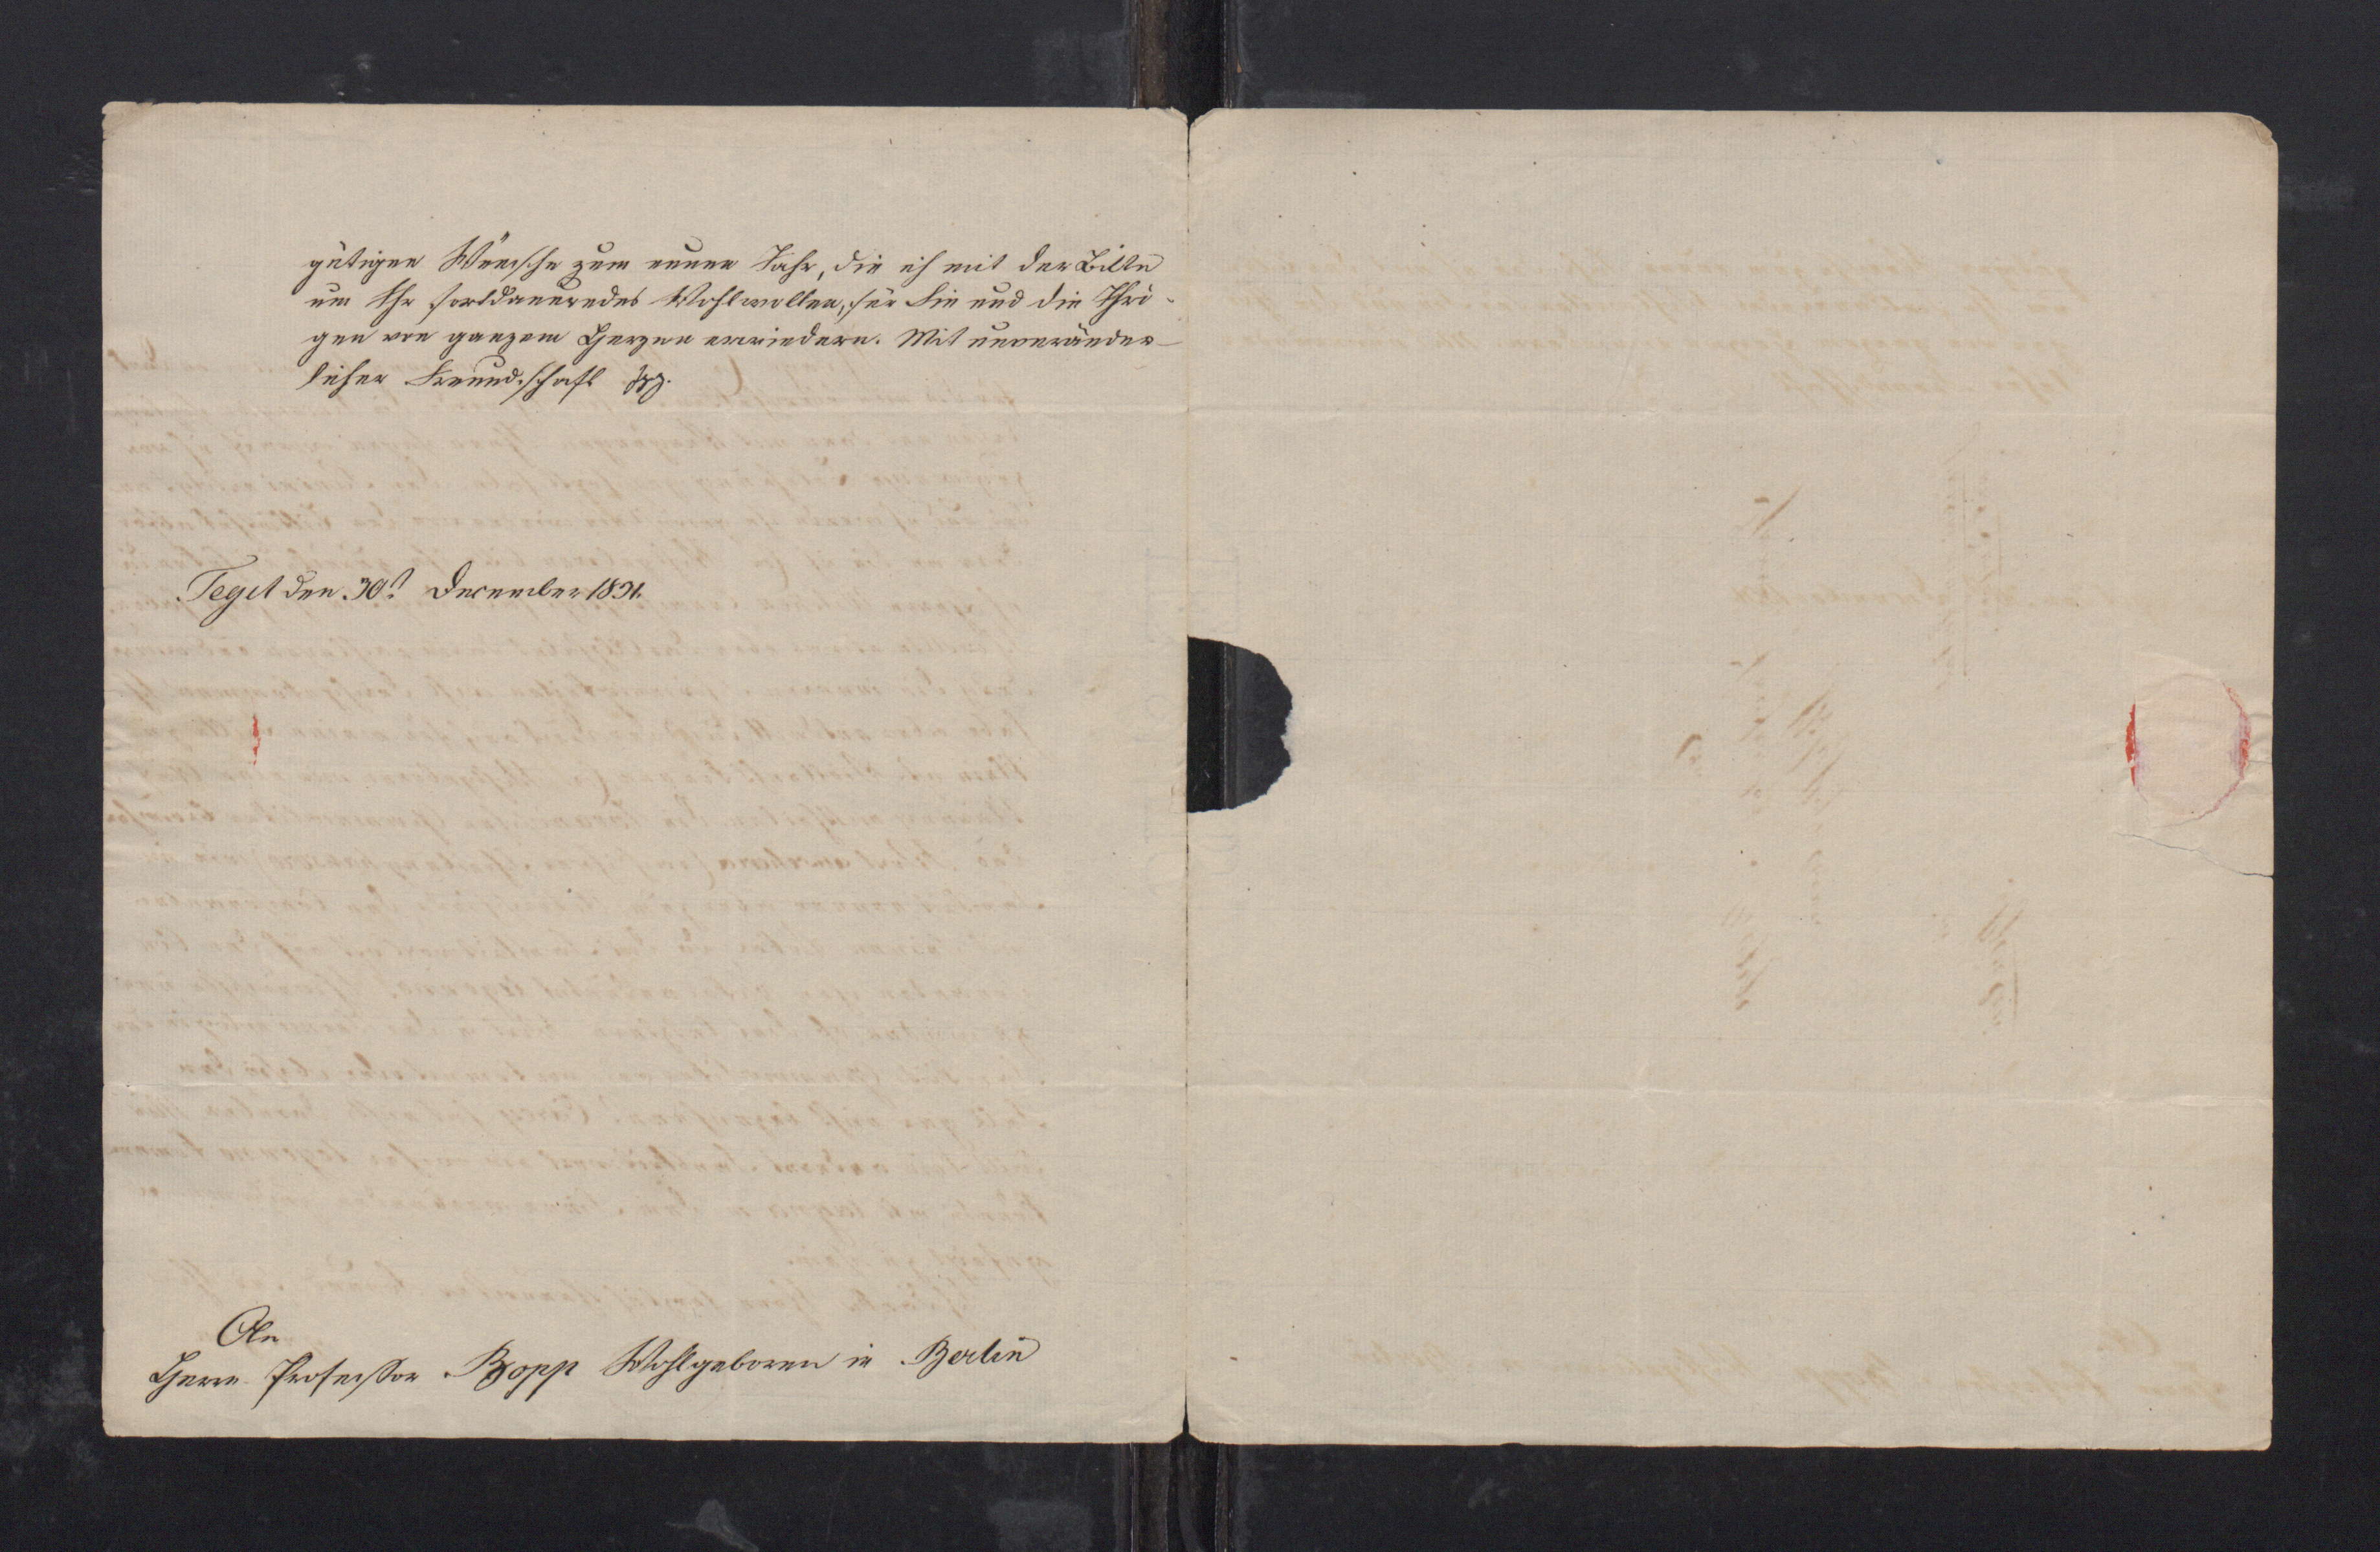 gütigen Wünsche zum neuen Jahr, die ich mit der Bitte
um Ihr fortdauerndes Wohlwollen, für Sie und die Ihri-
gen von ganzem Herzen erwiedere. Mit unveränder-
licher Freundschaft
Tegel den 30t. December 1831.
An
Herrn Professor Bopp Wohlgeboren in Berlin